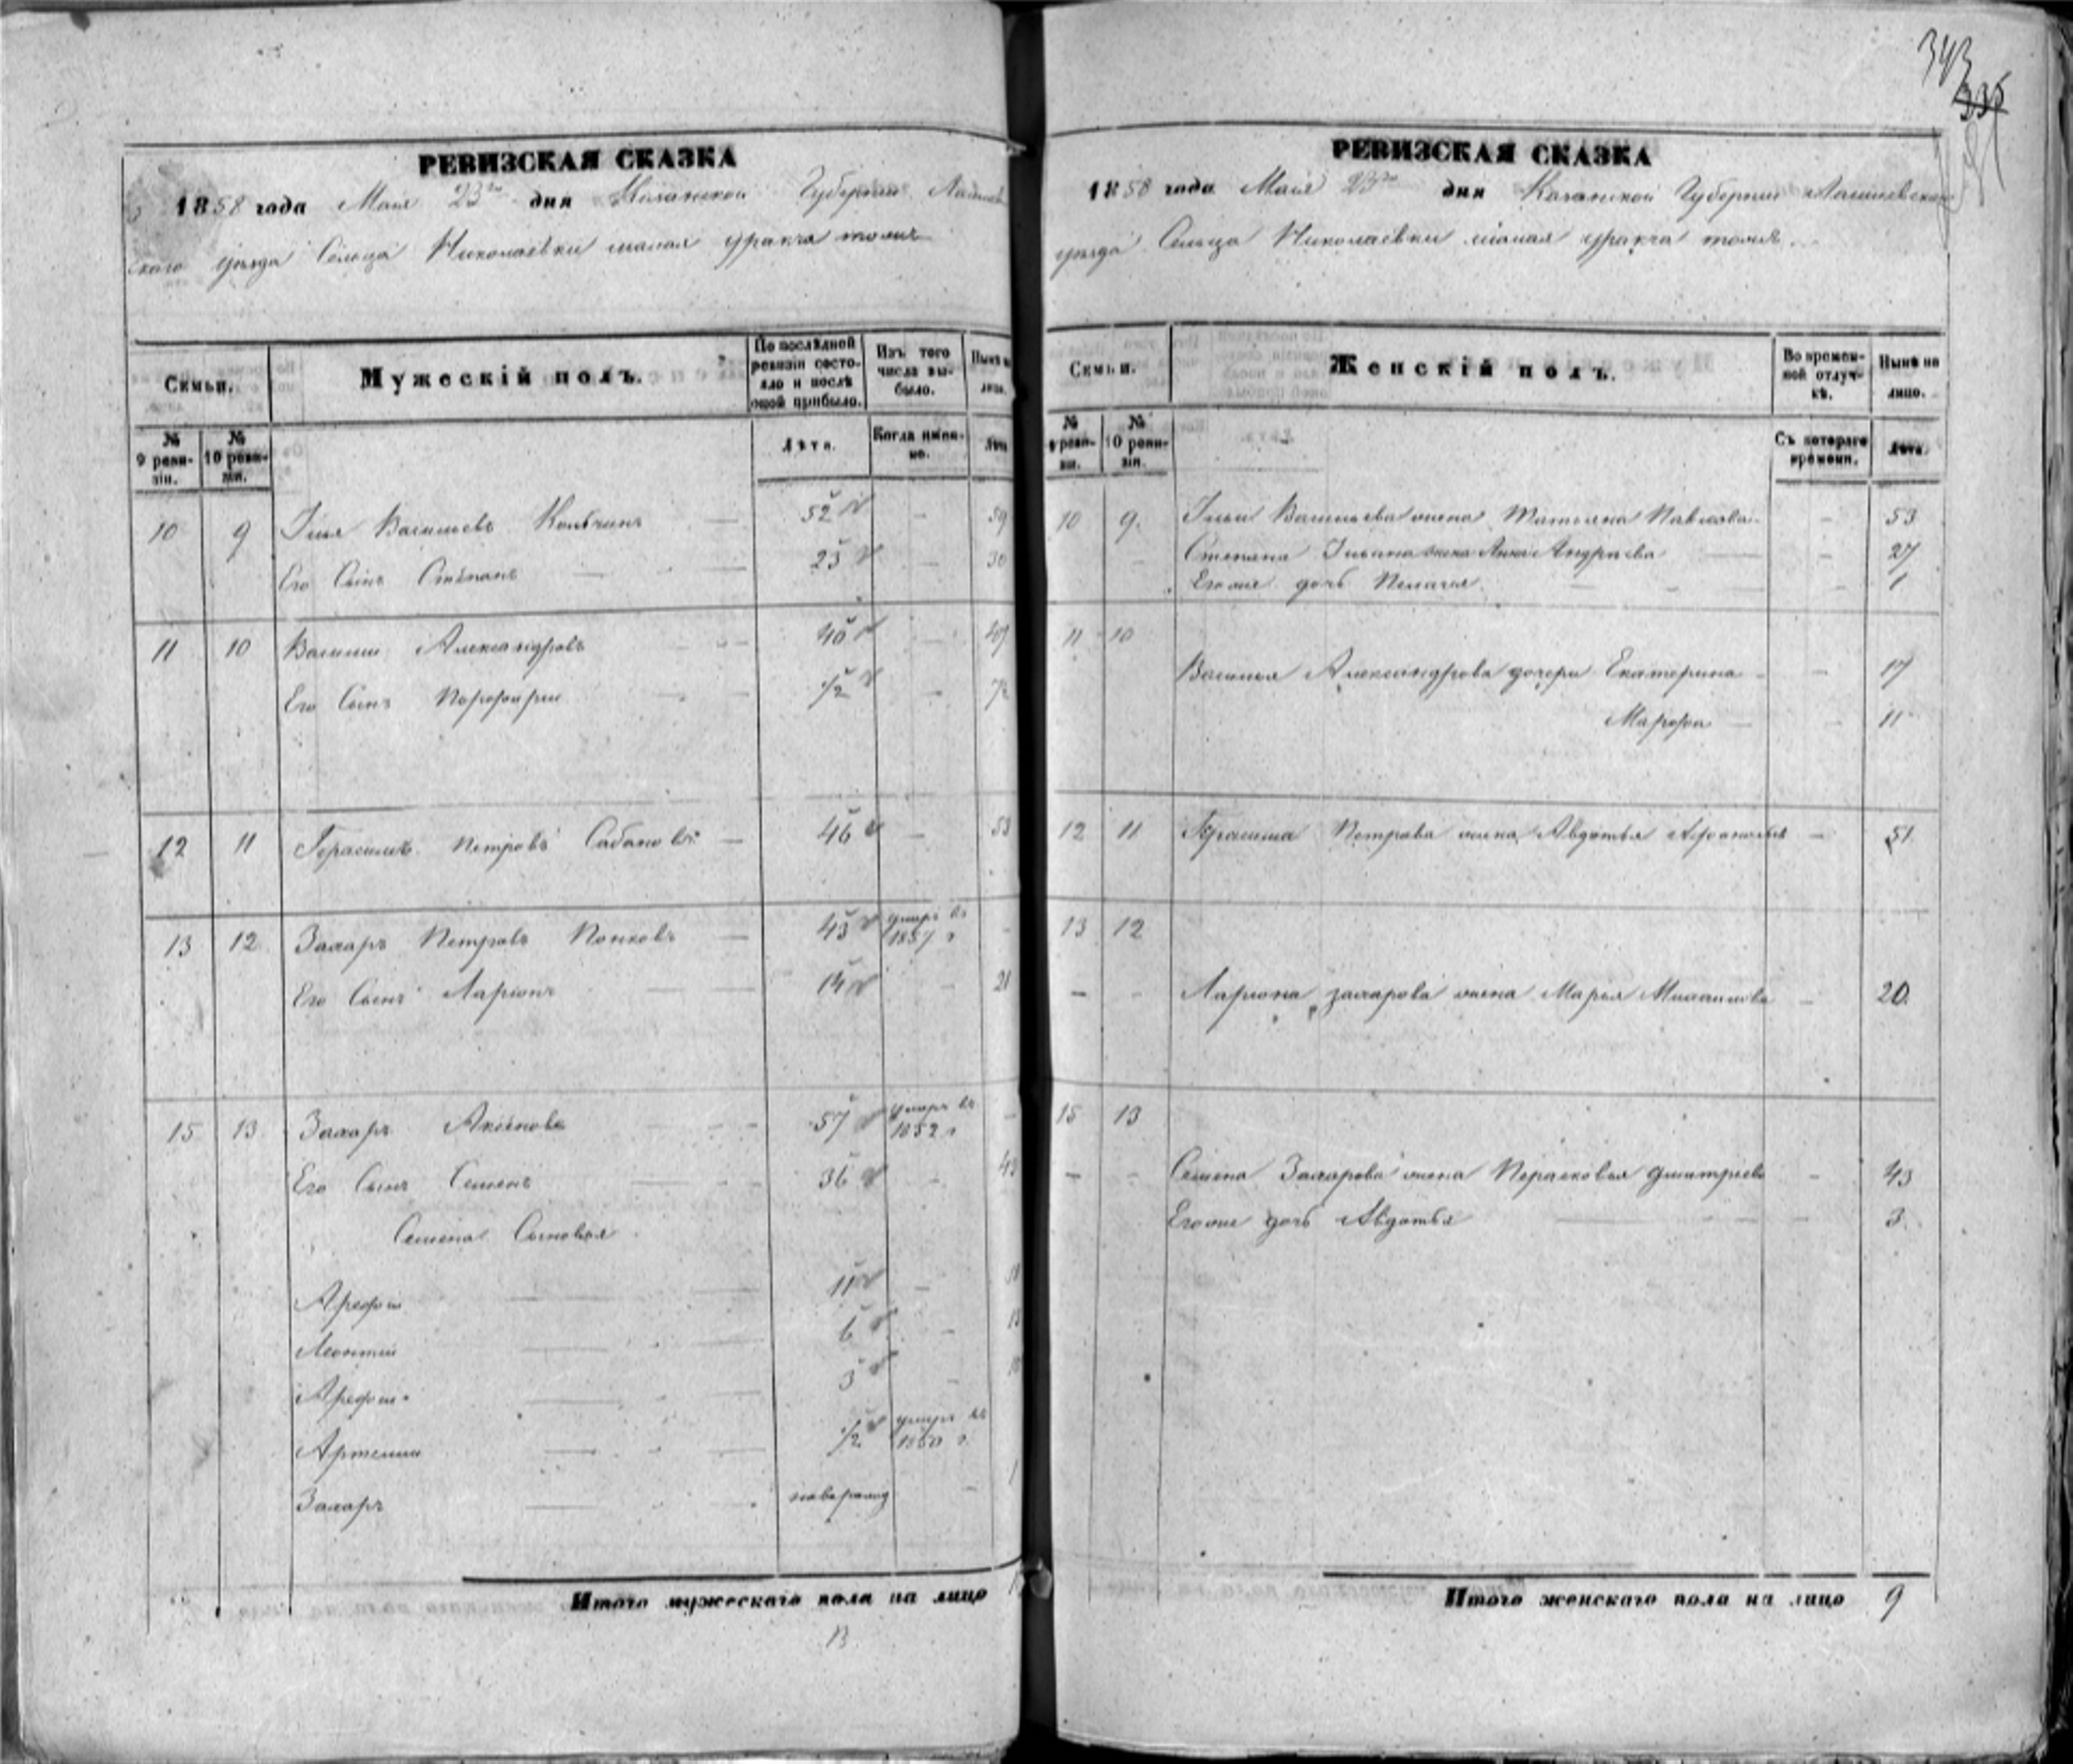 343
335
РЕВИЗСКАЯ СКАЗКА
1858 года Мая 23го дня Казанской Губернии Лаишев
скаго уезда Сельца Николаевки малая уракча тожъ
Семьи.
Мужескій полъ.
По послѣдней ревизіи состояло и послѣ оной прибыло.
Изъ того числа выбыло.
Нынѣ на лицо.
№ 9 ревизіи.
№ 10 ревизіи.
Лѣта.
Когда именно.
Лѣта
10 9 Илья Васильевъ 52 — 59
Его Сынъ Степанъ — 23 — 30
11 10 Василий Александровъ — 40 — 47
Его Сынъ Порфирий — 1/2 — 7 1/2
12 11 Герасимъ Петровъ Сабановъ — 46 — 53
13 12 Захаръ Петровъ Попковъ — 43 умеръ въ 1857 г —
Его Сынъ Ларіонъ — 14 — 21
15 13 Захаръ Аксёновъ — 57 умеръ въ 1852 г —
Его Сынъ Семенъ — 36 — 43
Семена Сыновья
Арефий — 11 —
Леонтий — 6 — 13
Арефий — 3 — 10
Артемий — 1/2 умеръ въ 1850 г.
Захаръ — — 1
Итого мужескаго пола на лицо
13
РЕВИЗСКАЯ СКАЗКА
1858 года Мая 23го дня Казанской Губернии Лаишевскаго
уезда Сельца Николаевки малая уракча тожъ.
Семьи.
Женскій полъ.
Во временной отлучкѣ.
Нынѣ на лицо.
№ 9 ревизіи.
№ 10 ревизіи.
Съ котораго времени.
Лѣта.
10 9. Ильи Васильева жена Татьяна Павлова — 53
Степана Ильина жена Анна Андреева — 27
Его же дочь Пелагея — 1
11 10
Василья Александрова дочери Екатерина — 17
Марфа — 11
12 11 Герасима Петрова жена Авдотья — 51
13 12
— Лариона захарова жена Марья Михайлова — 20.
15 13
— Семена Захарова жена Персковья дмитриева — 43
Его же дочь Авдотья — 3.
Итого женскаго пола на лицо 9